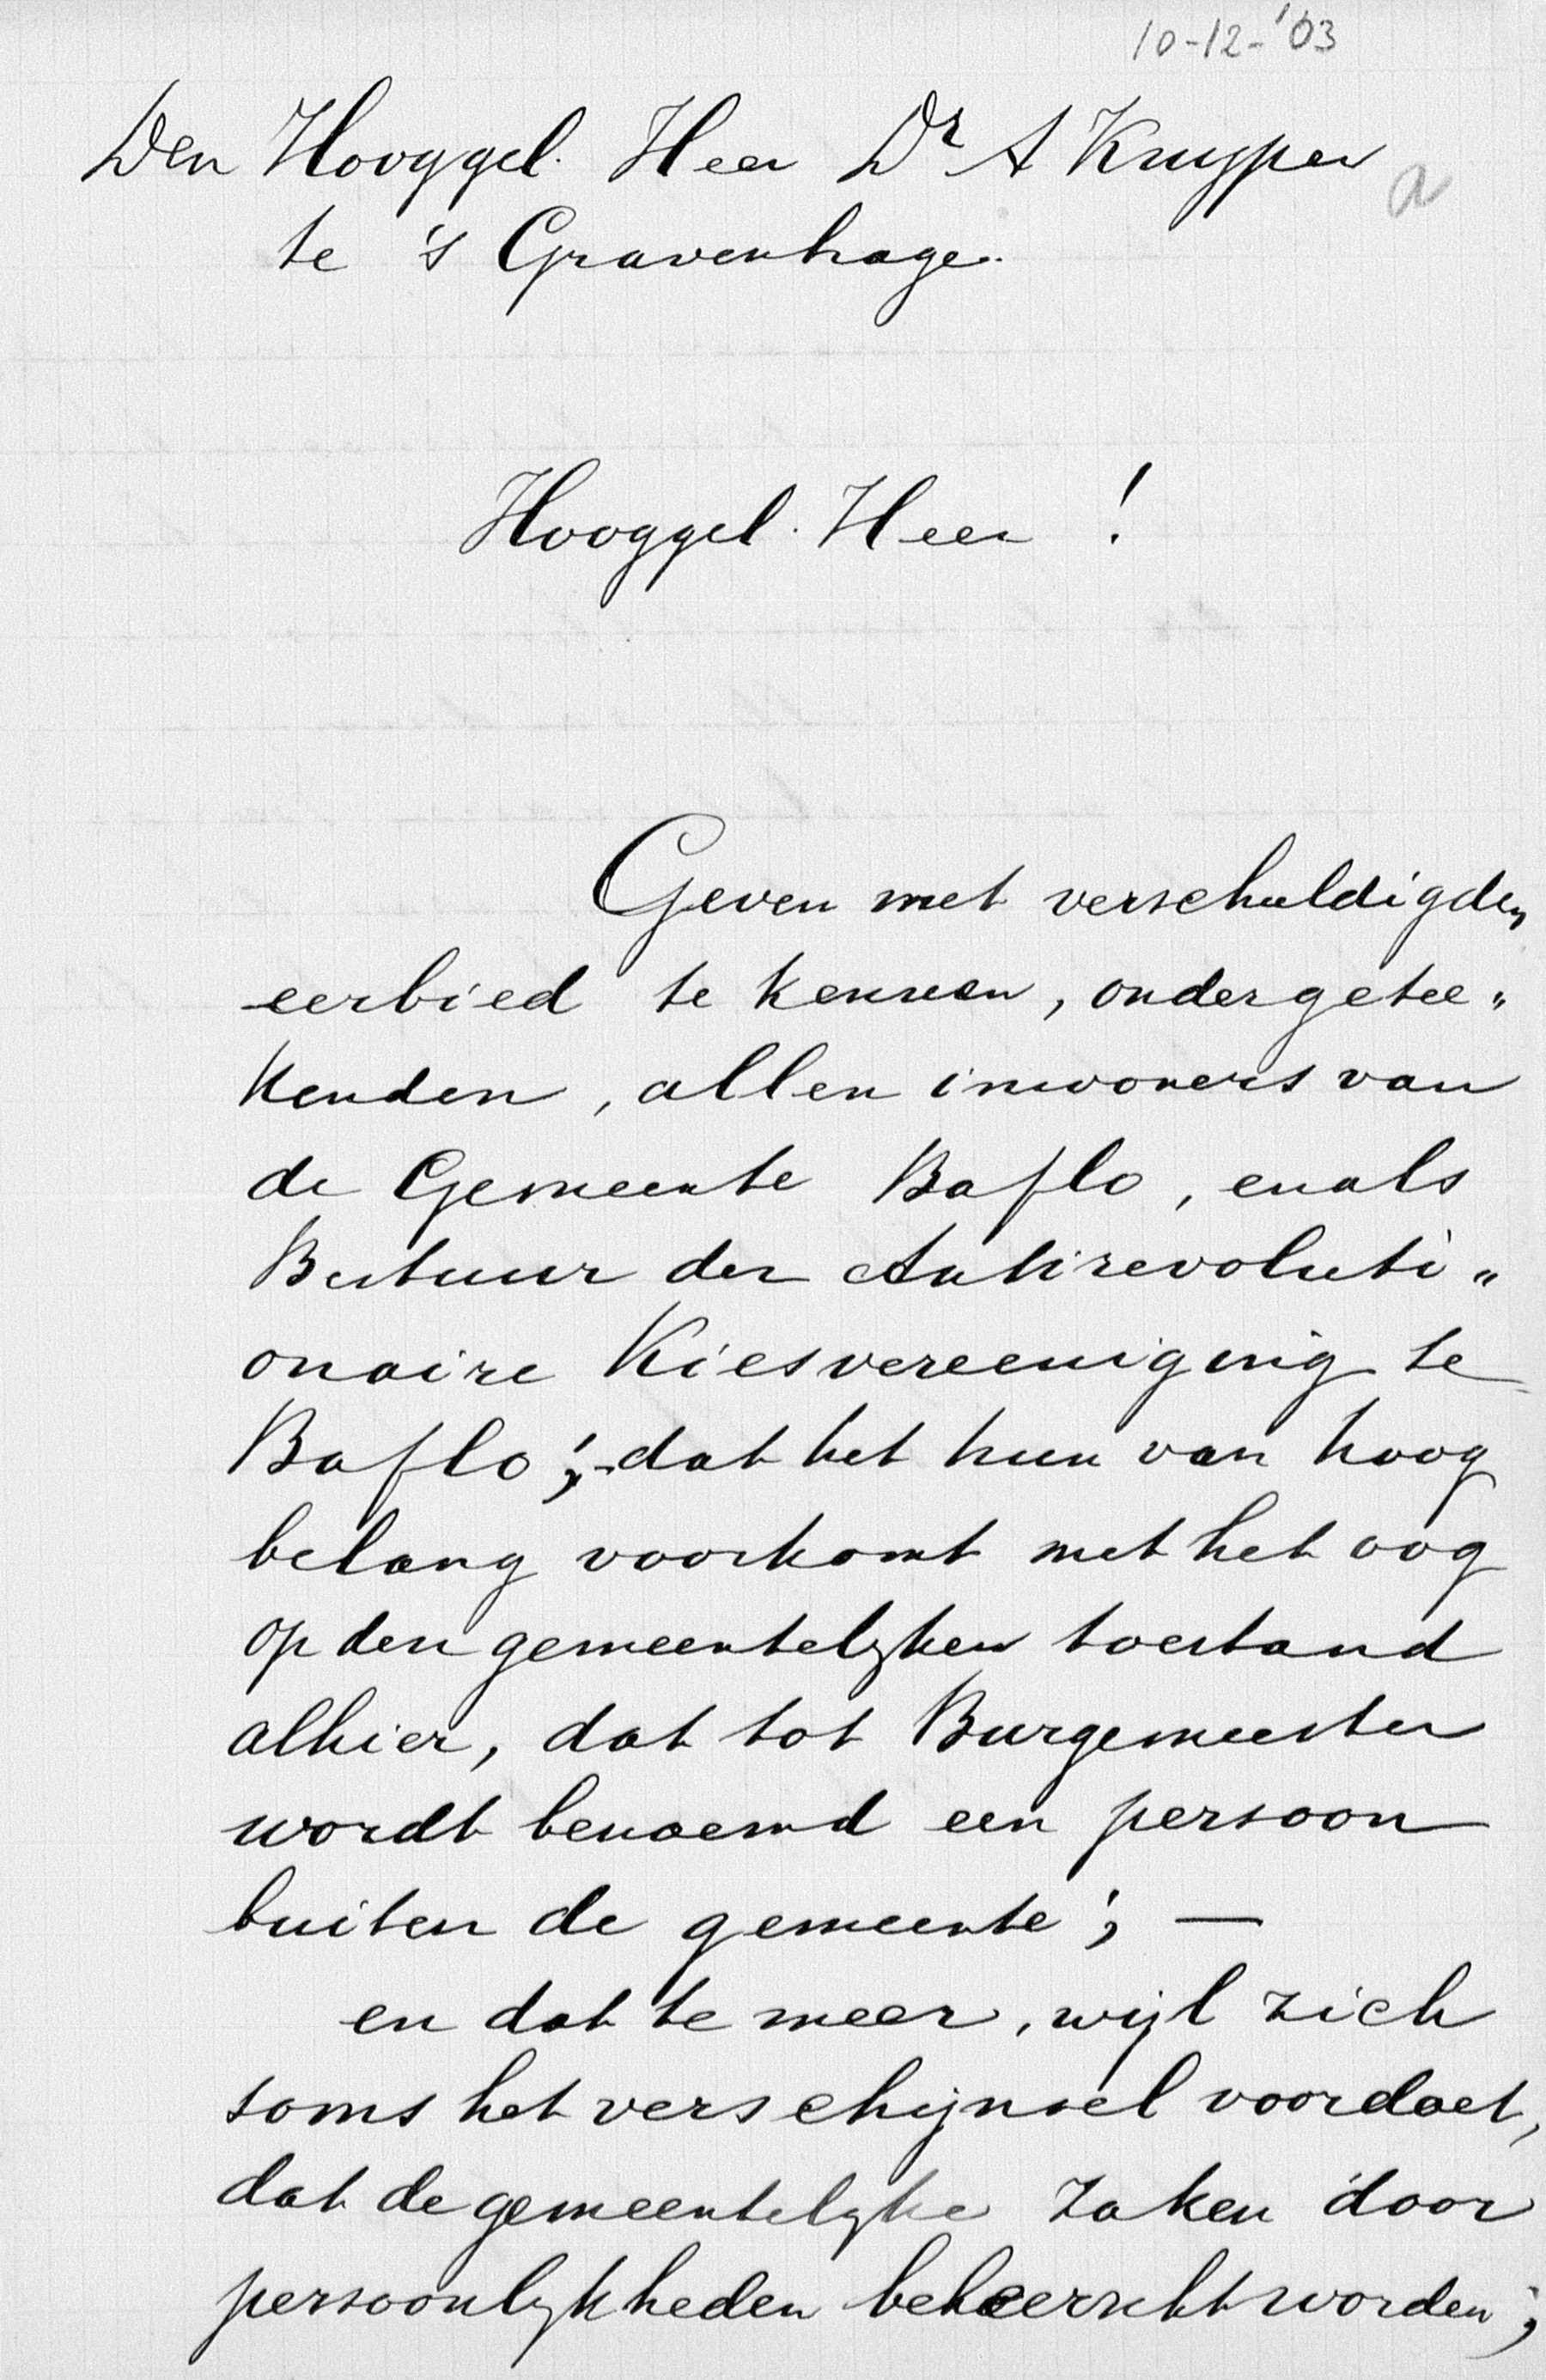 10-12-'03
Den Hooggel. Heer Dr A Kuyper
a
te 's Gravenhage.
Hooggel. Heer !
Geven met verschuldigden
eerbied te kennen, ondergetee„
kenden, allen inwoners van
de Gemeente Baflo, en als
Bestuur der Antirevoluti„
onaire Kiesvereeniging te
Baflo; dat het hun van hoog
belang voorkomt met het oog
op den gemeentelyken toestand
alhier, dat tot Burgemeester
wordt benoemd een persoon
buiten de gemeente; —
en dat te meer, wijl zich
soms het verschijnsel voordoet,
dat de gemeentelyke zaken door
persoonlykheden beheerscht worden;